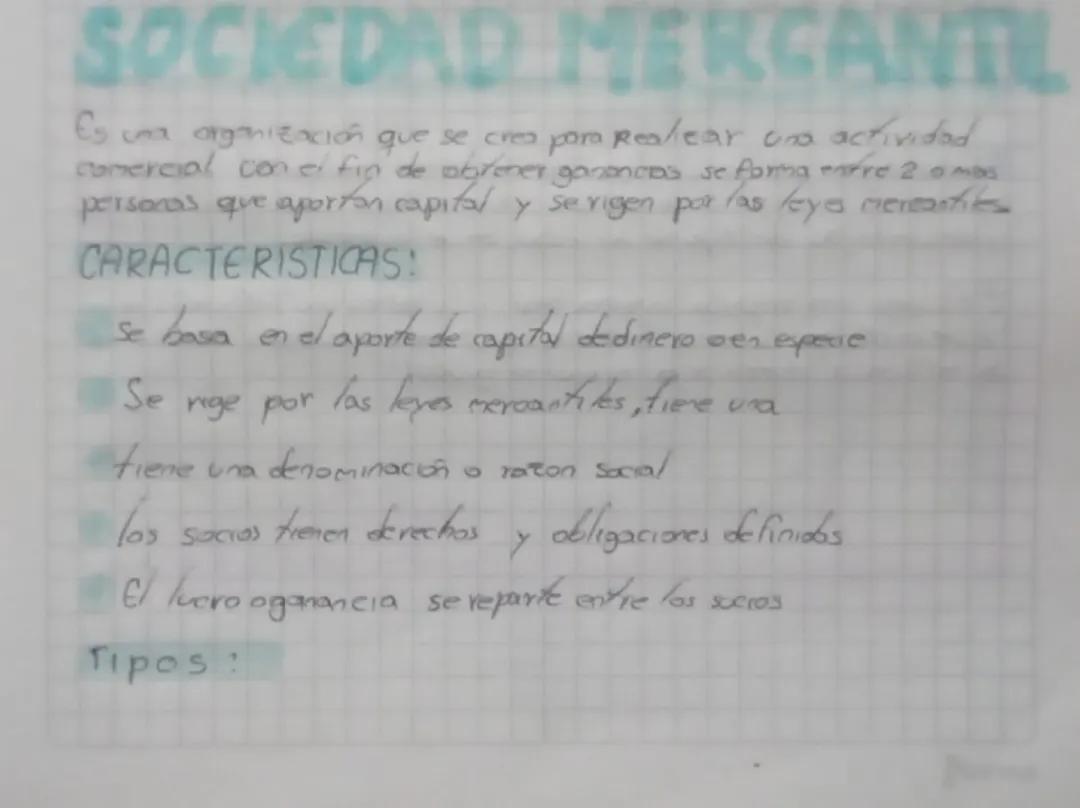 SOCIEDAD MERCANTIL
Es una organización que se crea para Realizar una actividad
comercial con el fin de obtener ganancias se forma entre 2 o mas
personas que aportan capital y se rigen por las leyes mercantiles
CARACTERISTICAS:
se basa en el aporte de capital de dinero o en especie
Se rige por las leyes mercantiles, tiene una
tiene una denominación o razon social
los socios tienen derechos y obligaciones definidos
El lucro o ganancia se reparte entre los socios
Tipos: